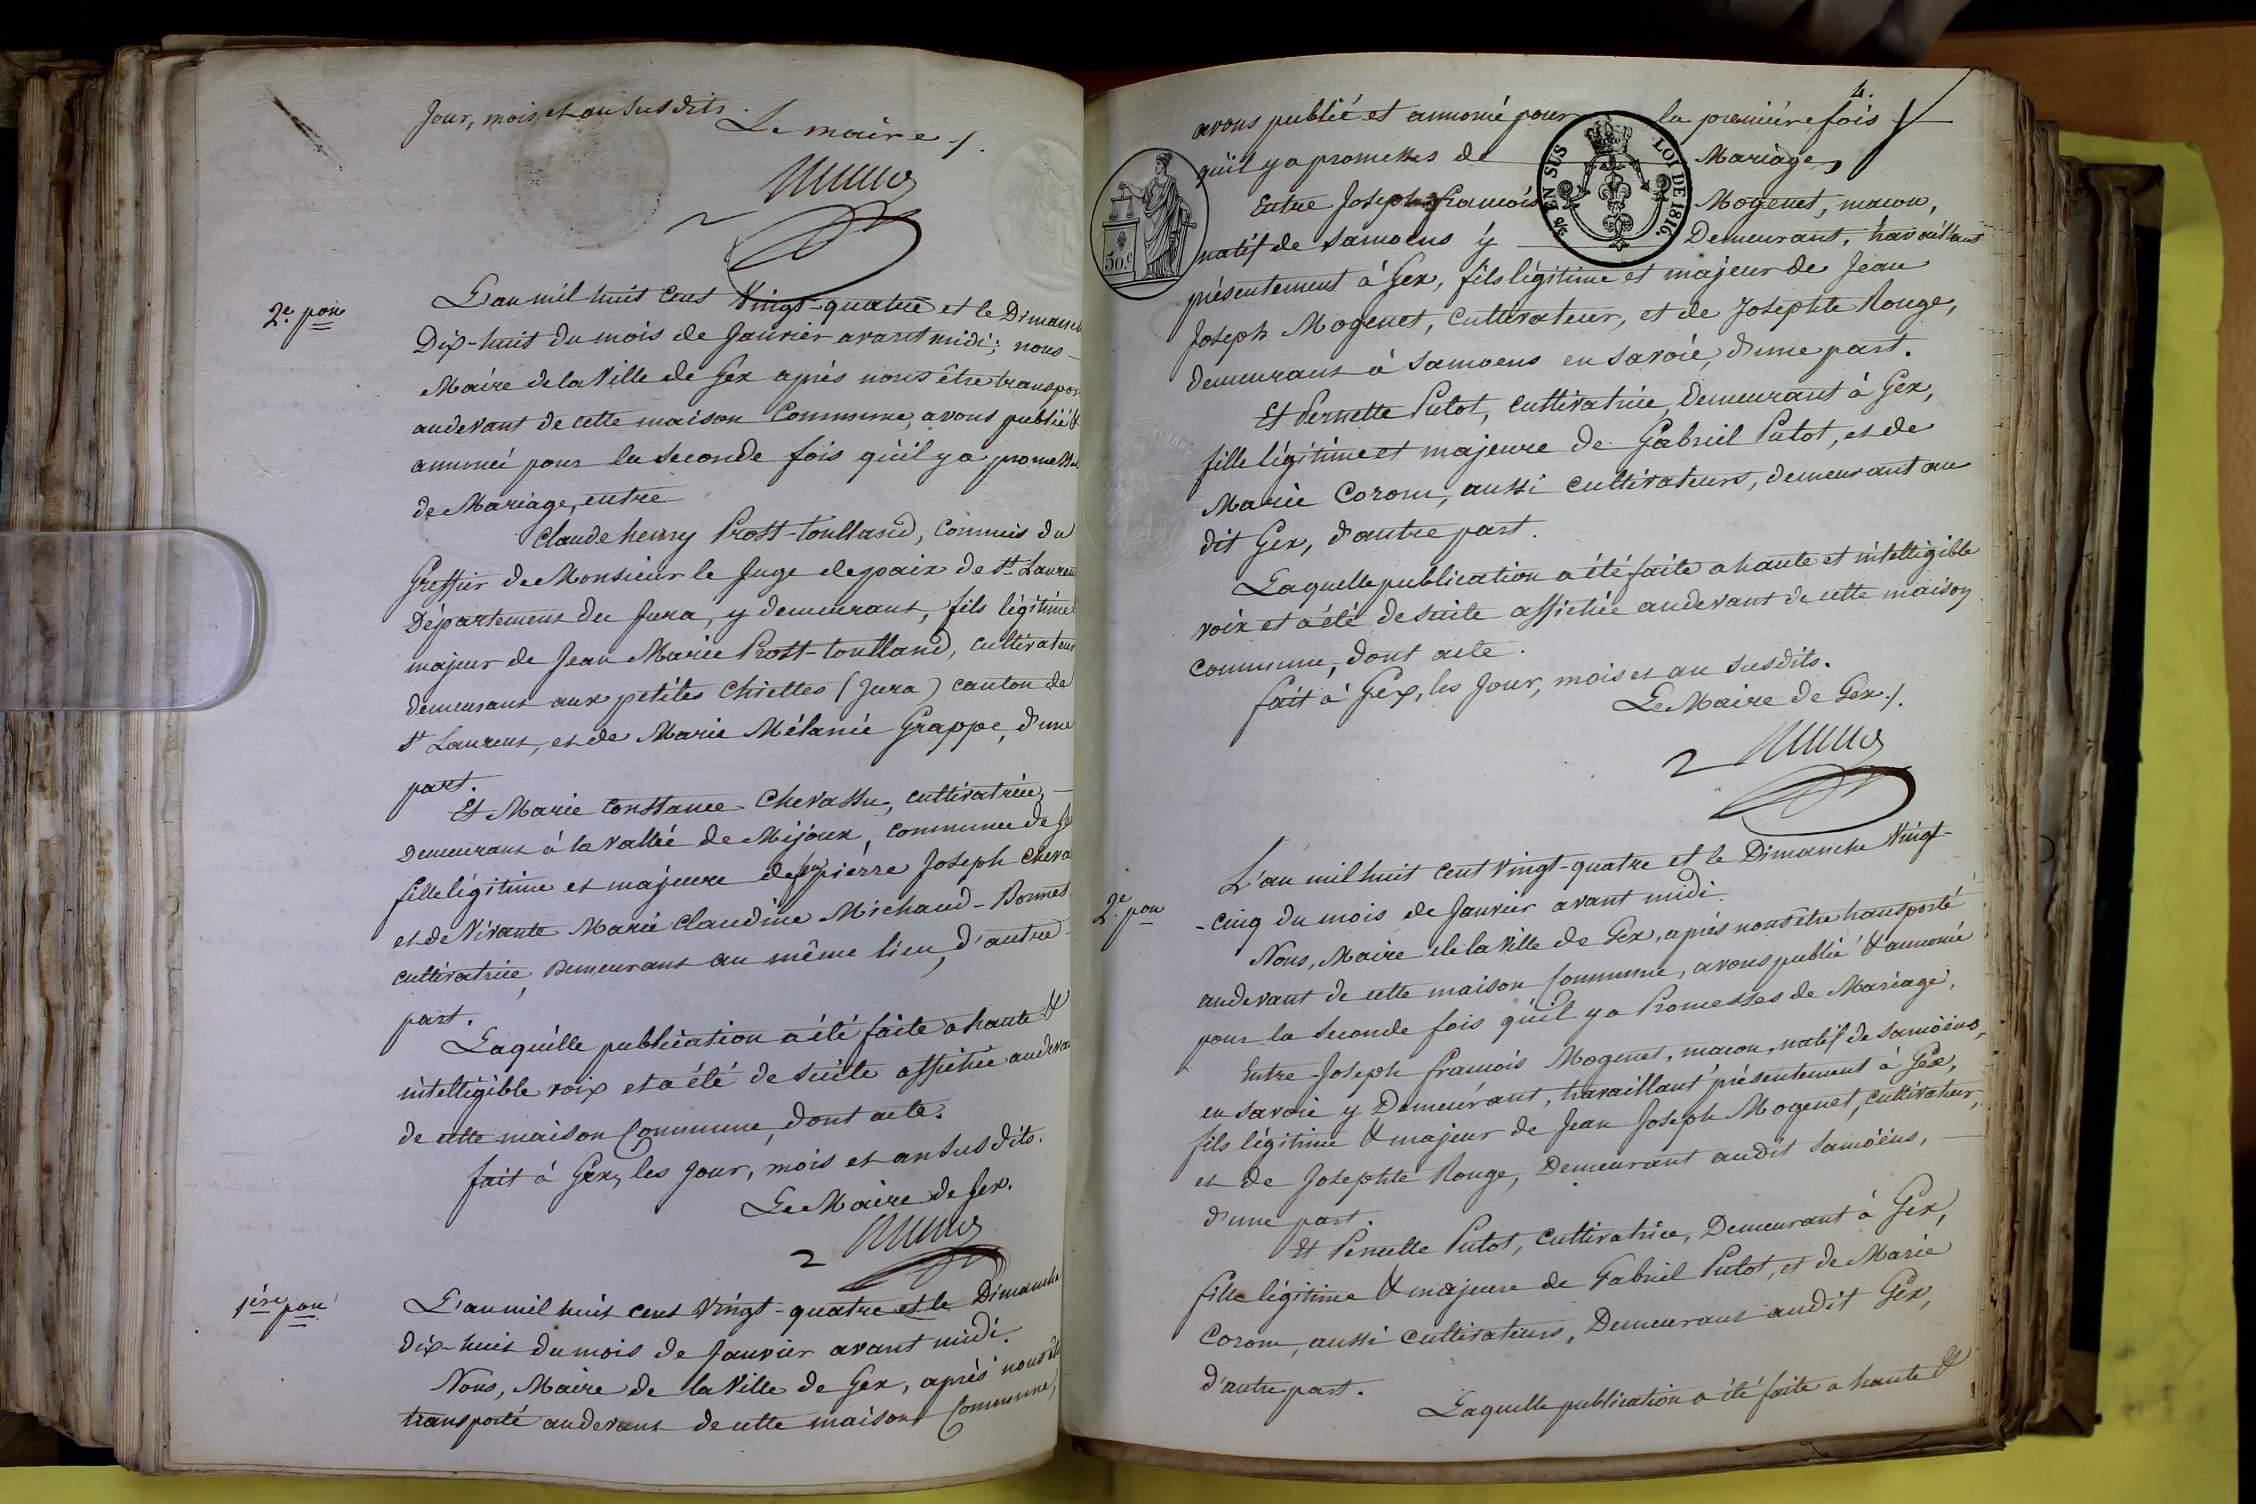 Jour, mois, et an susdits.
Le maire /.
2e. pon
L'an mil huit cent Vingt-quatre et le Dimanch
Dix-huit du mois de Janvier avant midi; nous
Maire de la Ville de Gex après nous être transpor
audevant de cette maison Commune, avons publié &
annoncé pour la seconde fois qu'il y a promesses
de Mariage, entre
Claude henry Prost-toulland, Commis du
Greffier de Monsieur le Juge de paix de St. Laurent
Département du Jura, y demeurant, fils légitime
majeur de Jean Marie Prost-toulland, cultivateur
demeurant aux petites Chiettes (Jura) canton de
St Laurent, et de Marie Mélanie Grappe, d'une
part.
Et Marie Constance Chevassu, cultivatrice,
Demeurant à la vallée de Mijoux, commune de Ge
fille légitime et majeure de feu pierre Joseph Cheva
et de Vivante Marie Claudine Michaud-Bonnet
cultivatrice, Demeurant au même lieu, d'autre
part.
Laquelle publication a été faite a haute &
intelligible voix et a été de suite affichée audeva
de cette maison Commune, dont acte.
fait à Gex, les Jour, mois et an susdits.
Le Maire de Gex.
1ère pon
L'an mil huit cent Vingt-quatre et le Dimanche
dix-huit du mois de Janvier avant midi.
Nous, Maire de la Ville de Gex, après nous êtr
transporté audevant de cette maison Commune,
4.
avons publié et annoncé pour la première fois
qu'il y a promesses de Mariage,
EN SUS LOI DE 1816.
50.c
Entre Joseph François Mogenet, macon,
natif de Samoens y Demeurant, travaillant
présentement à Gex, fils légitime et majeur de Jean
Joseph Mogenet, Cultivateur, et de Josephte Rouge,
demeurant à Samoens en Savoie, d'une part.
Et Pernette Putot, cultivatrice, Demeurant à Gex,
fille légitime et majeure de Gabriel Putot, et de
Marie Corom, aussi cultivateurs, demeurant au
dit Gex, d'autre part.
Laquelle publication a été faite a haute et intelligible
voix et a été de suite affichée audevant de cette maison
commune, dont acte.
fait à Gex, les Jour, mois et an susdits.
Le Maire de Gex /.
2e. pon
L'an mil huit cent Vingt-quatre et le Dimanche Vingt-
-cinq du mois de Janvier avant midi.
Nous, Maire de la Ville de Gex, après nous être transporté
audevant de cette maison Commune, avons publié & annoncé
pour la Seconde fois qu'il y a Promesses de Mariage,
Entre Joseph françois Mogenet, macon, natif de Samöens,
en Savoie y Demeurant, travaillant présentement à Gex,
fils légitime & majeur de Jean Joseph Mogenet, cultivateur,
et de Josephte Rouge, Demeurant audit Samöens,
d'une part.
Et Pernette Putot, Cultivatrice, Demeurant à Gex,
fille légitime & majeure de Gabriel Putot, et de Marie
Corom, aussi cultivateurs, Demeurant audit Gex,
d'autre part.
Laquelle publication a été faite a haute &